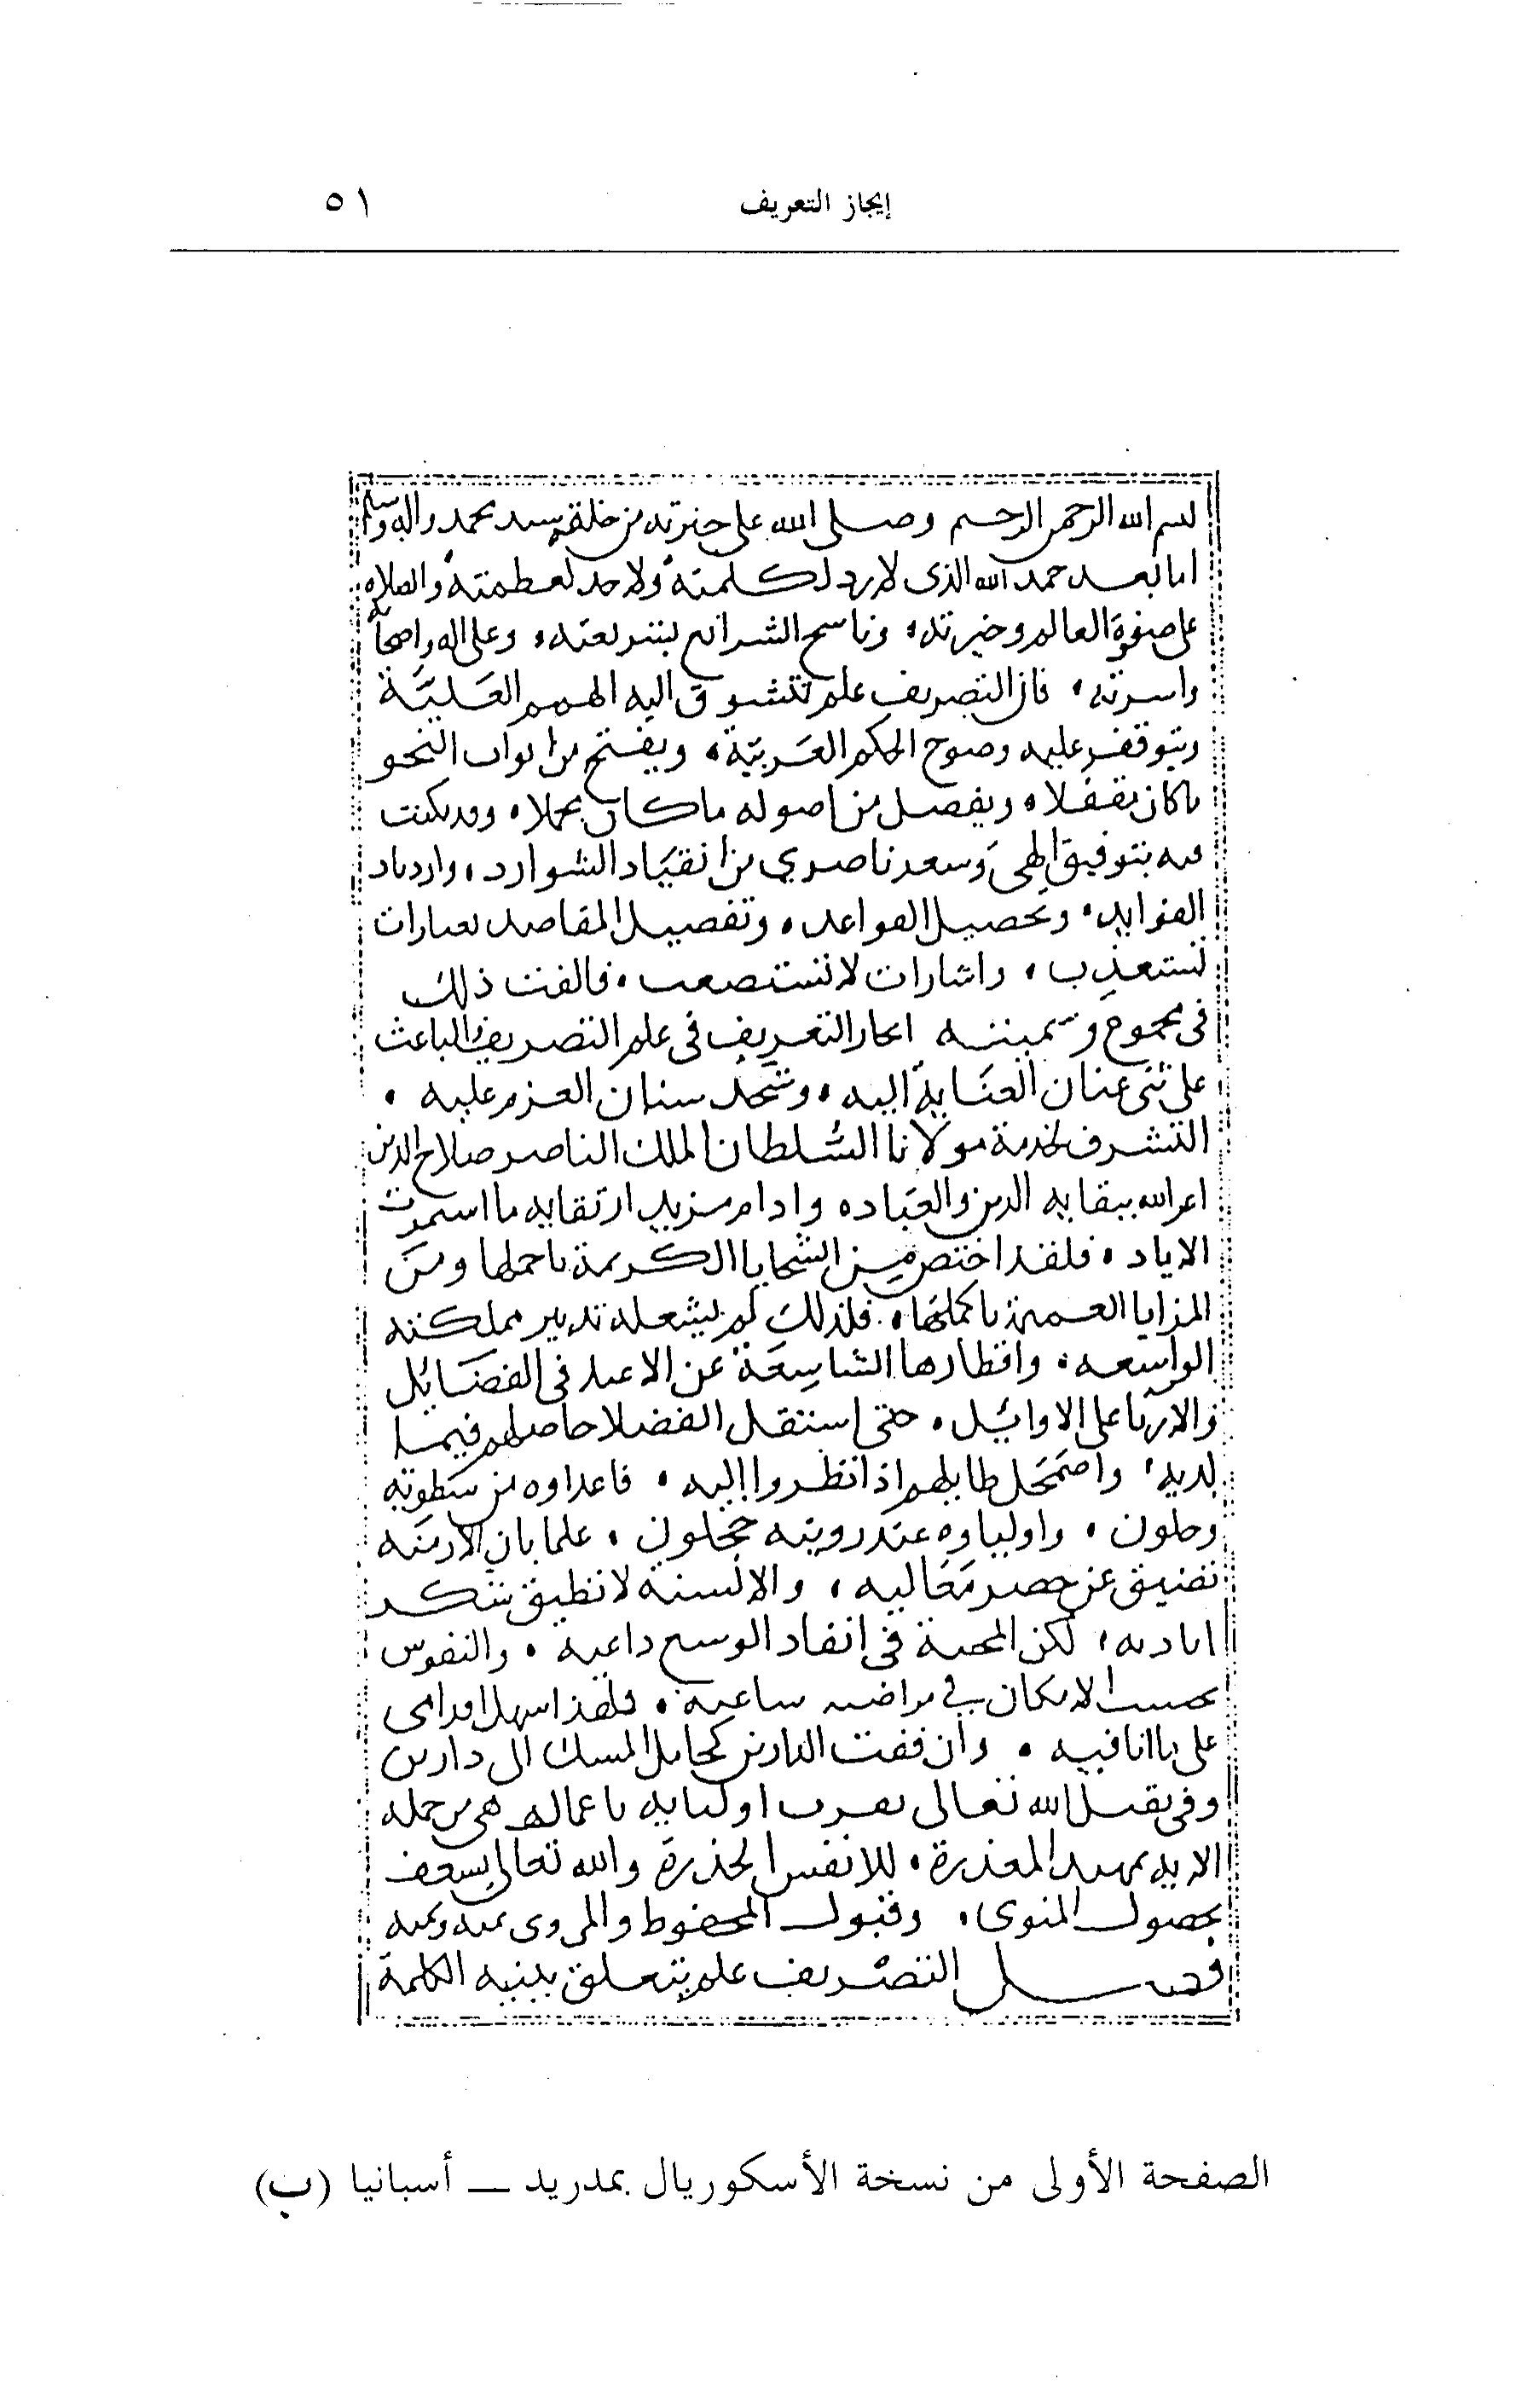 إيجاز التعريف ٥١
بسم الله الرحمن الرحيم وصلى الله على خيرته من خلقه سيد محمد واله وسلم
اما بعد حمد الله الذى لا رد لكلمته ولا حد لعظمته والصلاه
على صفوة العالم وخيرته، وناسخ الشرائع بشريعته، وعلى اله واصحابه
واسرته، فان التصريف علم تتشوق اليه الهمم العَليَّة
ويتوقف عليه وضوح الحكم العَربيّة، ويفتح من ابواب النحو
ما كان مقفلا، ويفصل من اصوله ما كان مجملا، وقد مكنت
فيه بتوفيق الهى وسعد ناصري من انقيَاد الشوارد، وازدياد
الفوايد، وتحصيل القواعد، وتفصيل المقاصد بعبارات
تستعذب، واشارات لا تستصعب، فالفت ذلك
فى مجموع وسميته ايجاز التعريف فى علم التصريف والباعث
على ثنى عنان العنَاية اليه، وشحذ سنان العزم عليه،
التشرف لخدمة مولانا السُّلطان الملك الناصر صلاح الدين
اعز الله ببقايه الدين والعبَاده وادام مزيد ارتقايه ما استمرت
الاياد، فلقد اختص مِن السجايا الكريمة باجملها ومن
المزايا العميمة باكملها، فلذلك لم يشغله تدبير مملكته
الواسعه، واقطارها الشاسِعَة عن الاعتلا فى الفضَائل
والاربا على الاوائِل، حتى استقل الفضلا حاصلهم فيما
لديه، واضمَحل طايلهم اذا نظروا اليه، فاعداوه من سَطوته
وجلون، واولياوه عند رويته خجلون، علما بان الازمنَه
تضيق عن حصر مَعَاليه، والالسنة لا تطيق شكر
اياديه، لكن المحبة فى انفاد الوسع داعية، والنفوس
بحسب الامكان في مراضيه ساعية، فلهذا سهل اقدامى
على ما انا فيه، وان فقت الدارس كحامل المسك الى دارين
وفى تقبل الله تعالى لقرب اوليايه باعمالهم هى من جمله
الايه تمهيد المعذرة، للانفس الحذرة والله تعالى يسعف
بحصول المنوى، وقبول المحفوظ والمروى بمنه ويمنه
فصل التصْريف علم يتعلق ببنيه الكلمة
الصفحة الأولى من نسخة الأسكوريال بمدريد ــ أسبانيا (ب)